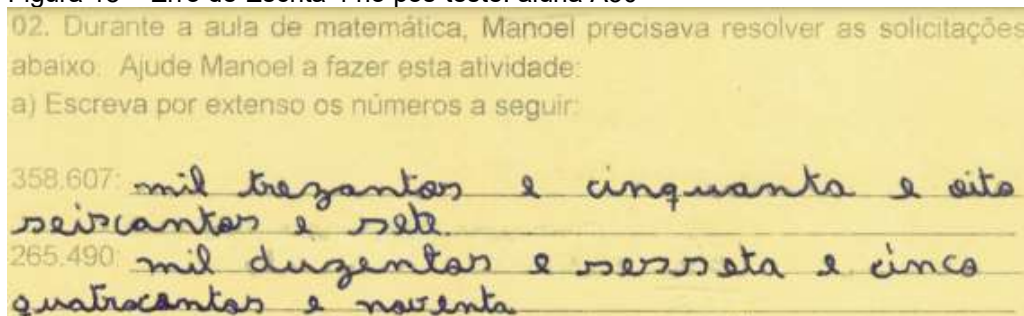 02. Durante a aula de matemática, Manoel precisava resolver as solicitações
abaixo. Ajude Manoel a fazer esta atividade:
a) Escreva por extenso os números a seguir:
358.607: mil trezantos e cinquanta e oito
seiscantos e sete.
265.490: mil duzentos e sesseta e cinco
quatrocantos e noventa